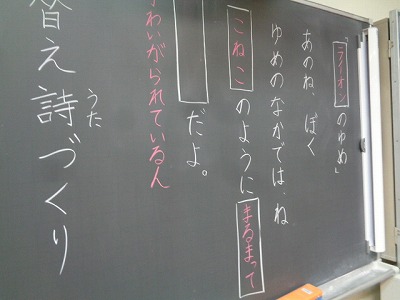 「ライオンのゆめ」
あのね、ぼく
ゆめのなかでは、ね
こねこのようにまるまって
だよ。
わいがられているん
替え詩づくり
うた